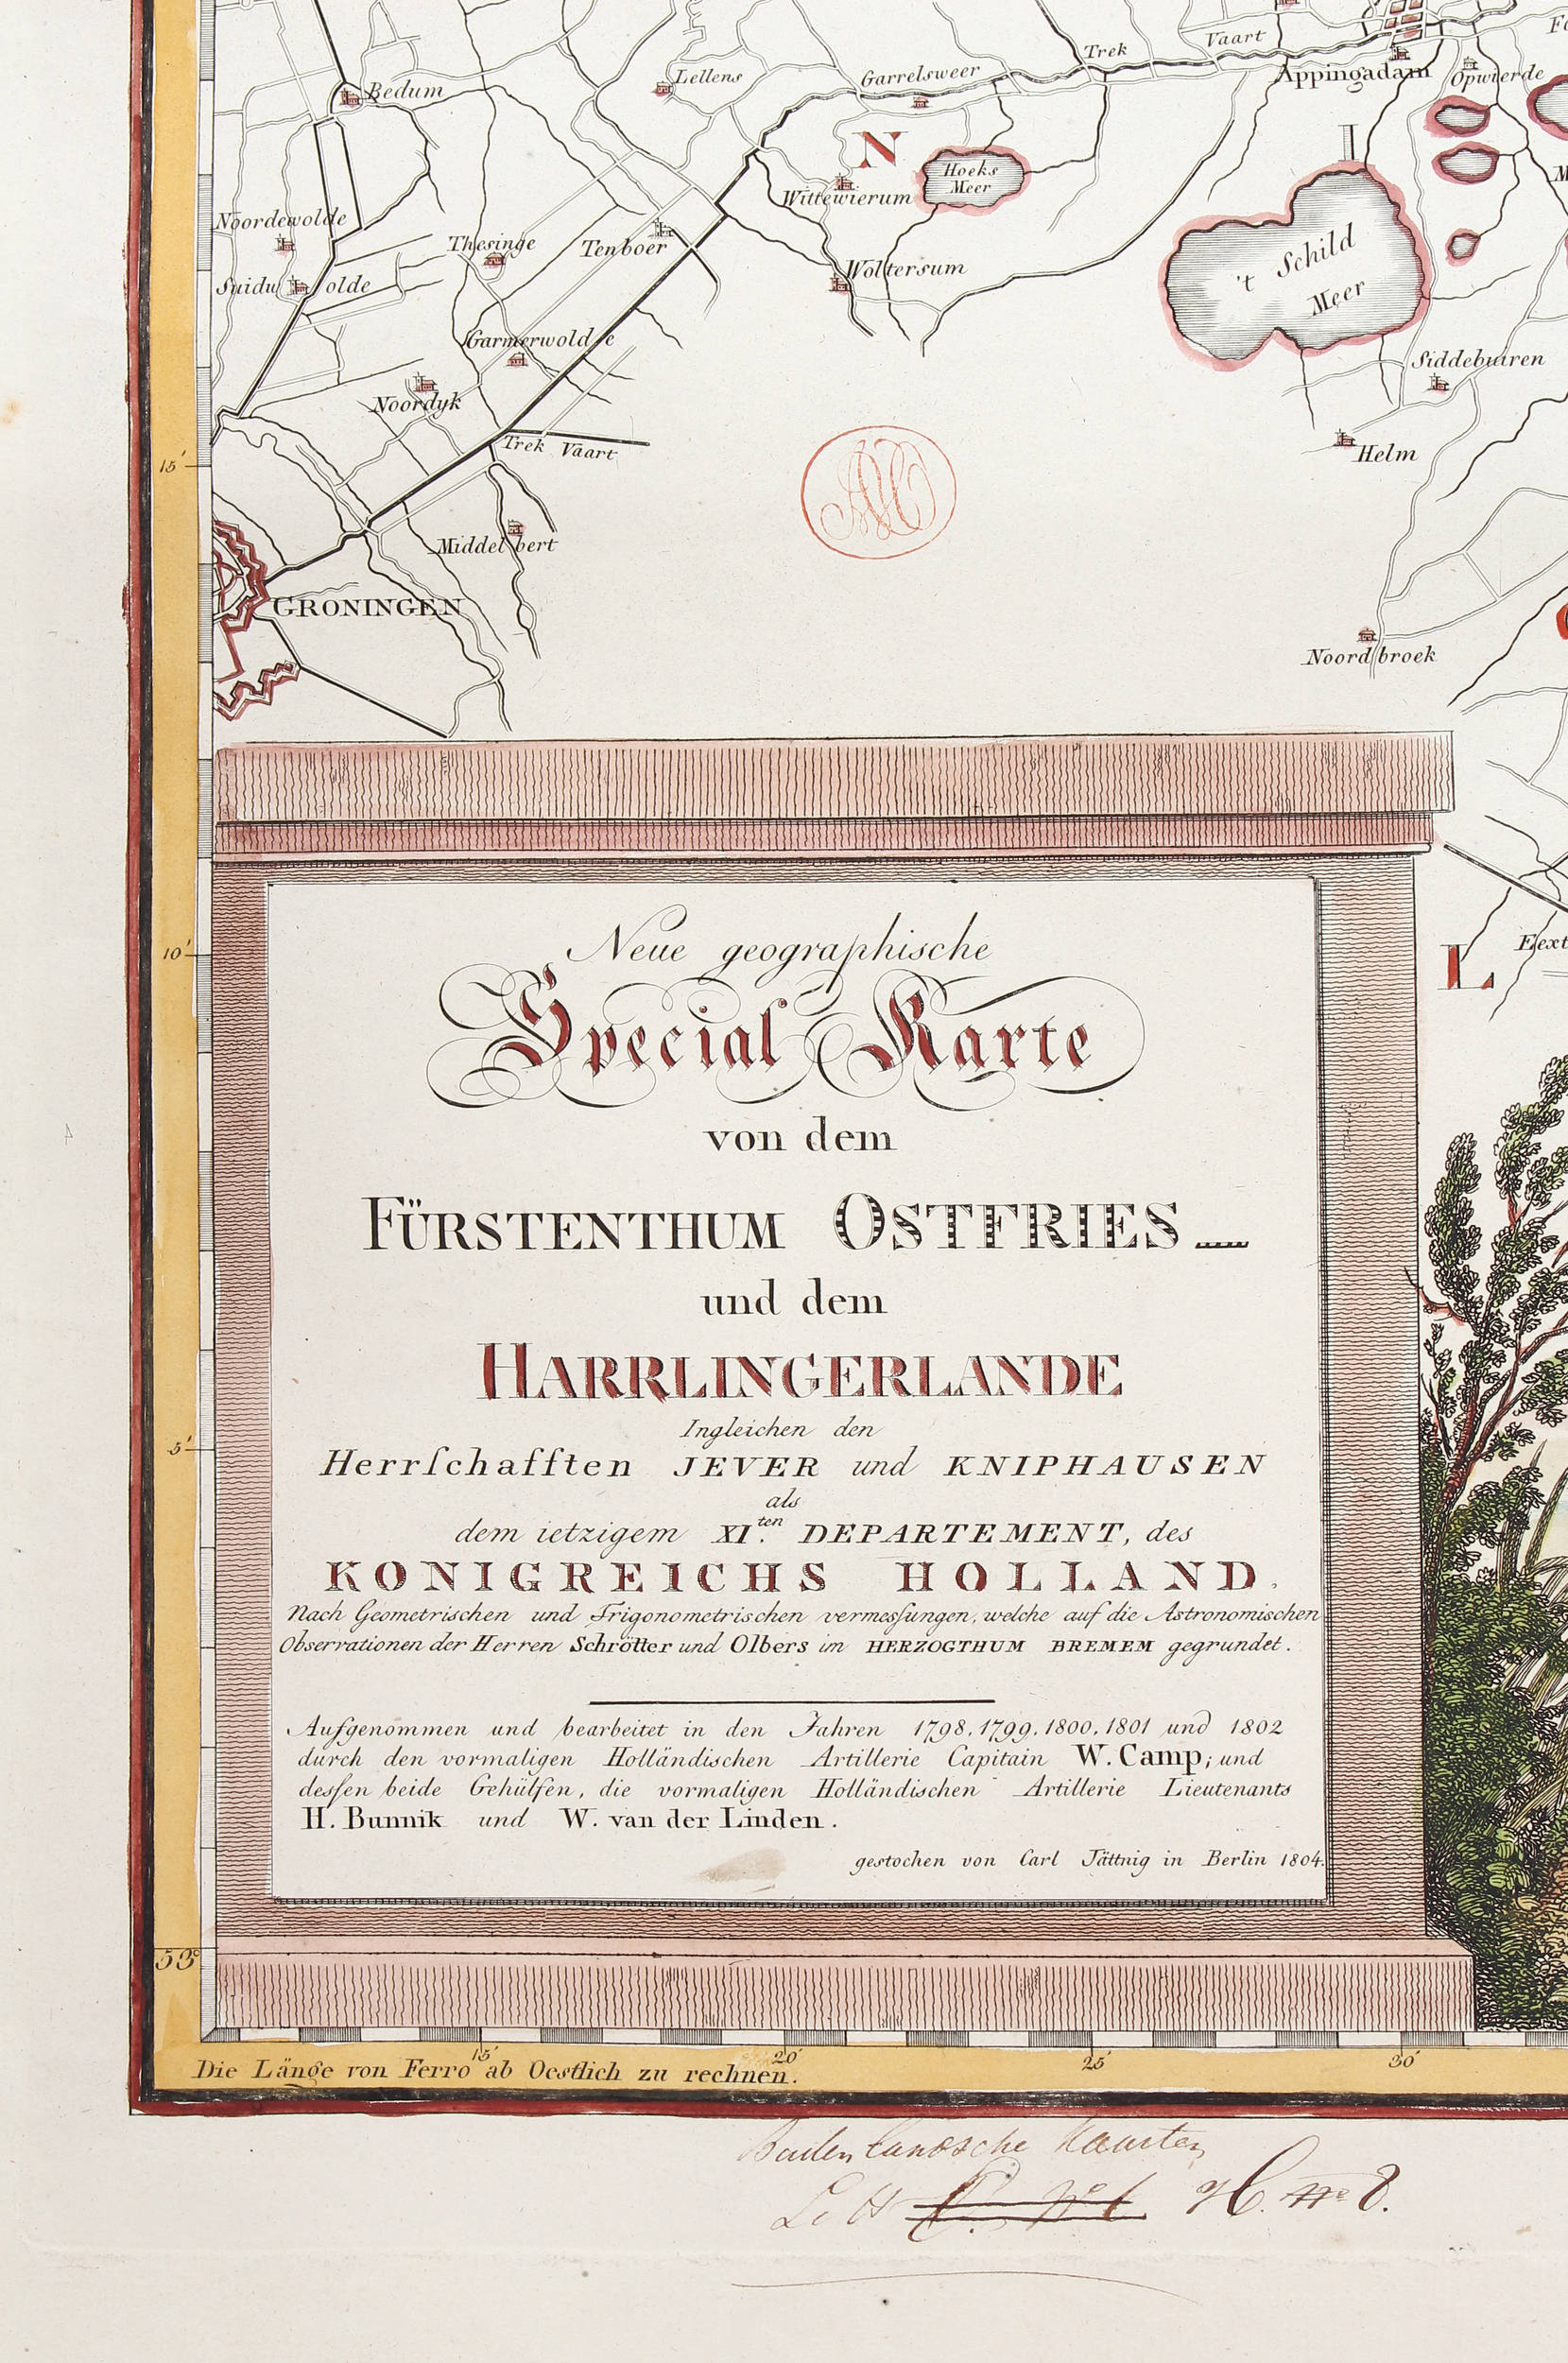 Trek Vaart
Appingadam Opwierde
Lellens Garrelsweer
Bedum
N I
Hoeks
Meer
Wittewierum
Noordewolde
Thesinge Tenboer
't Schild
Meer
Woltersum
Suidu olde
Garmerwolde
Siddebuiren
Noordyk
Trek Vaart
Helm
15'
Middelbert
GRONINGEN
Noordbroek
10'
L Eext
Neue geographische
Special Karte
von dem
FÜRSTENTHUM OSTFRIES
und dem
HARRLINGERLANDE
Ingleichen den
Herrſchafften JEVER und KNIPHAUSEN
als
dem ietzigem XI.ten DEPARTEMENT, des
KONIGREICHS HOLLAND.
Nach Geometrischen und Trigonometrischen vermesſungen, welche auf die Astronomischen
Obserrationen der Herren Schrötter und Olbers im HERZOGTHUM BREMEM gegrundet.
5'
Aufgenommen und bearbeitet in den Jahren 1798. 1799. 1800. 1801 und 1802
durch den vormaligen Holländischen Artillerie Capitain W. Camp; und
desſen beide Gehülfen, die vormaligen Holländischen Artillerie Lieutenants
H. Bunnik und W. van der Linden.
gestochen von Carl Jättnig in Berlin 1804.
53°
15' 20' 25' 30'
Die Länge von Ferro ab Oestlich zu rechnen.
Buitenlandsche Kaarten
H. No 8.